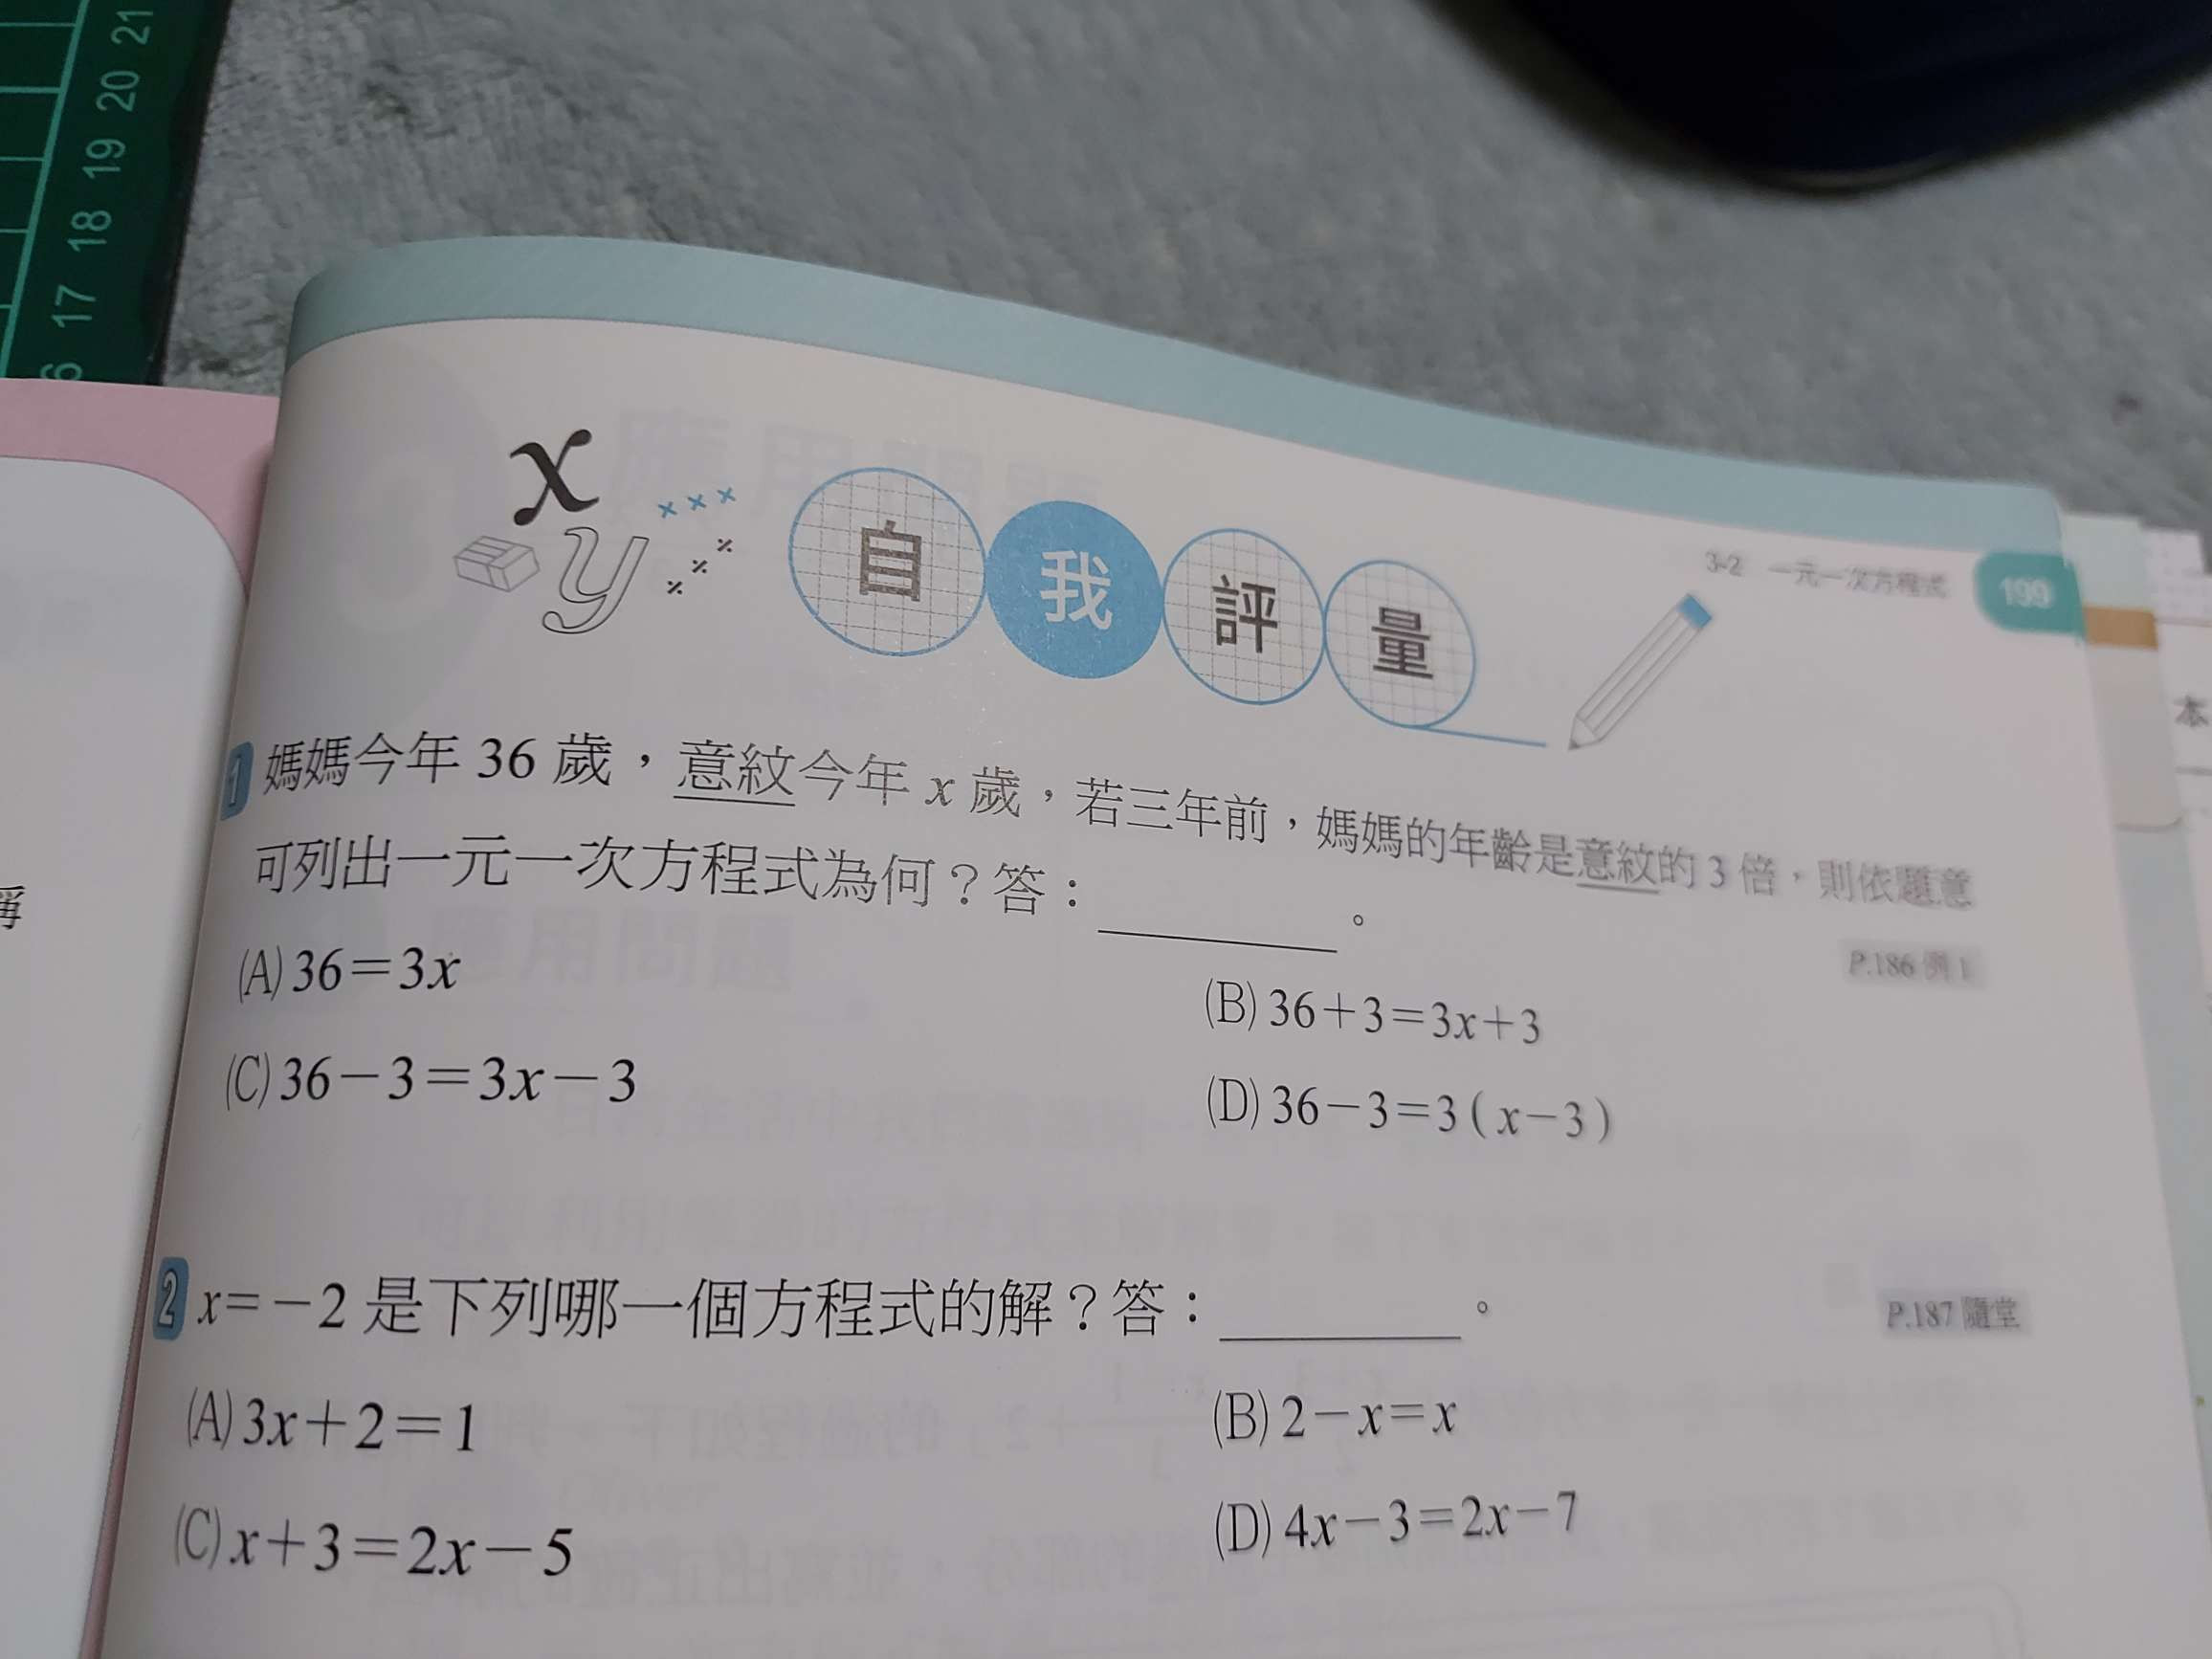 21
20
19
18
17
6
x
y
自我評量
3-2 一元一次方程式 199
本
1 媽媽今年 36 歲，意紋今年 x 歲，若三年前，媽媽的年齡是意紋的 3 倍，則依題意
可列出一元一次方程式為何？答：＿＿＿＿。
P.186 例 1
(A) 36＝3x
(B) 36＋3＝3x＋3
(C) 36－3＝3x－3
(D) 36－3＝3（x－3）
2 x＝－2 是下列哪一個方程式的解？答：＿＿＿＿。
P.187 隨堂
(A) 3x＋2＝1
(B) 2－x＝x
(C) x＋3＝2x－5
(D) 4x－3＝2x－7